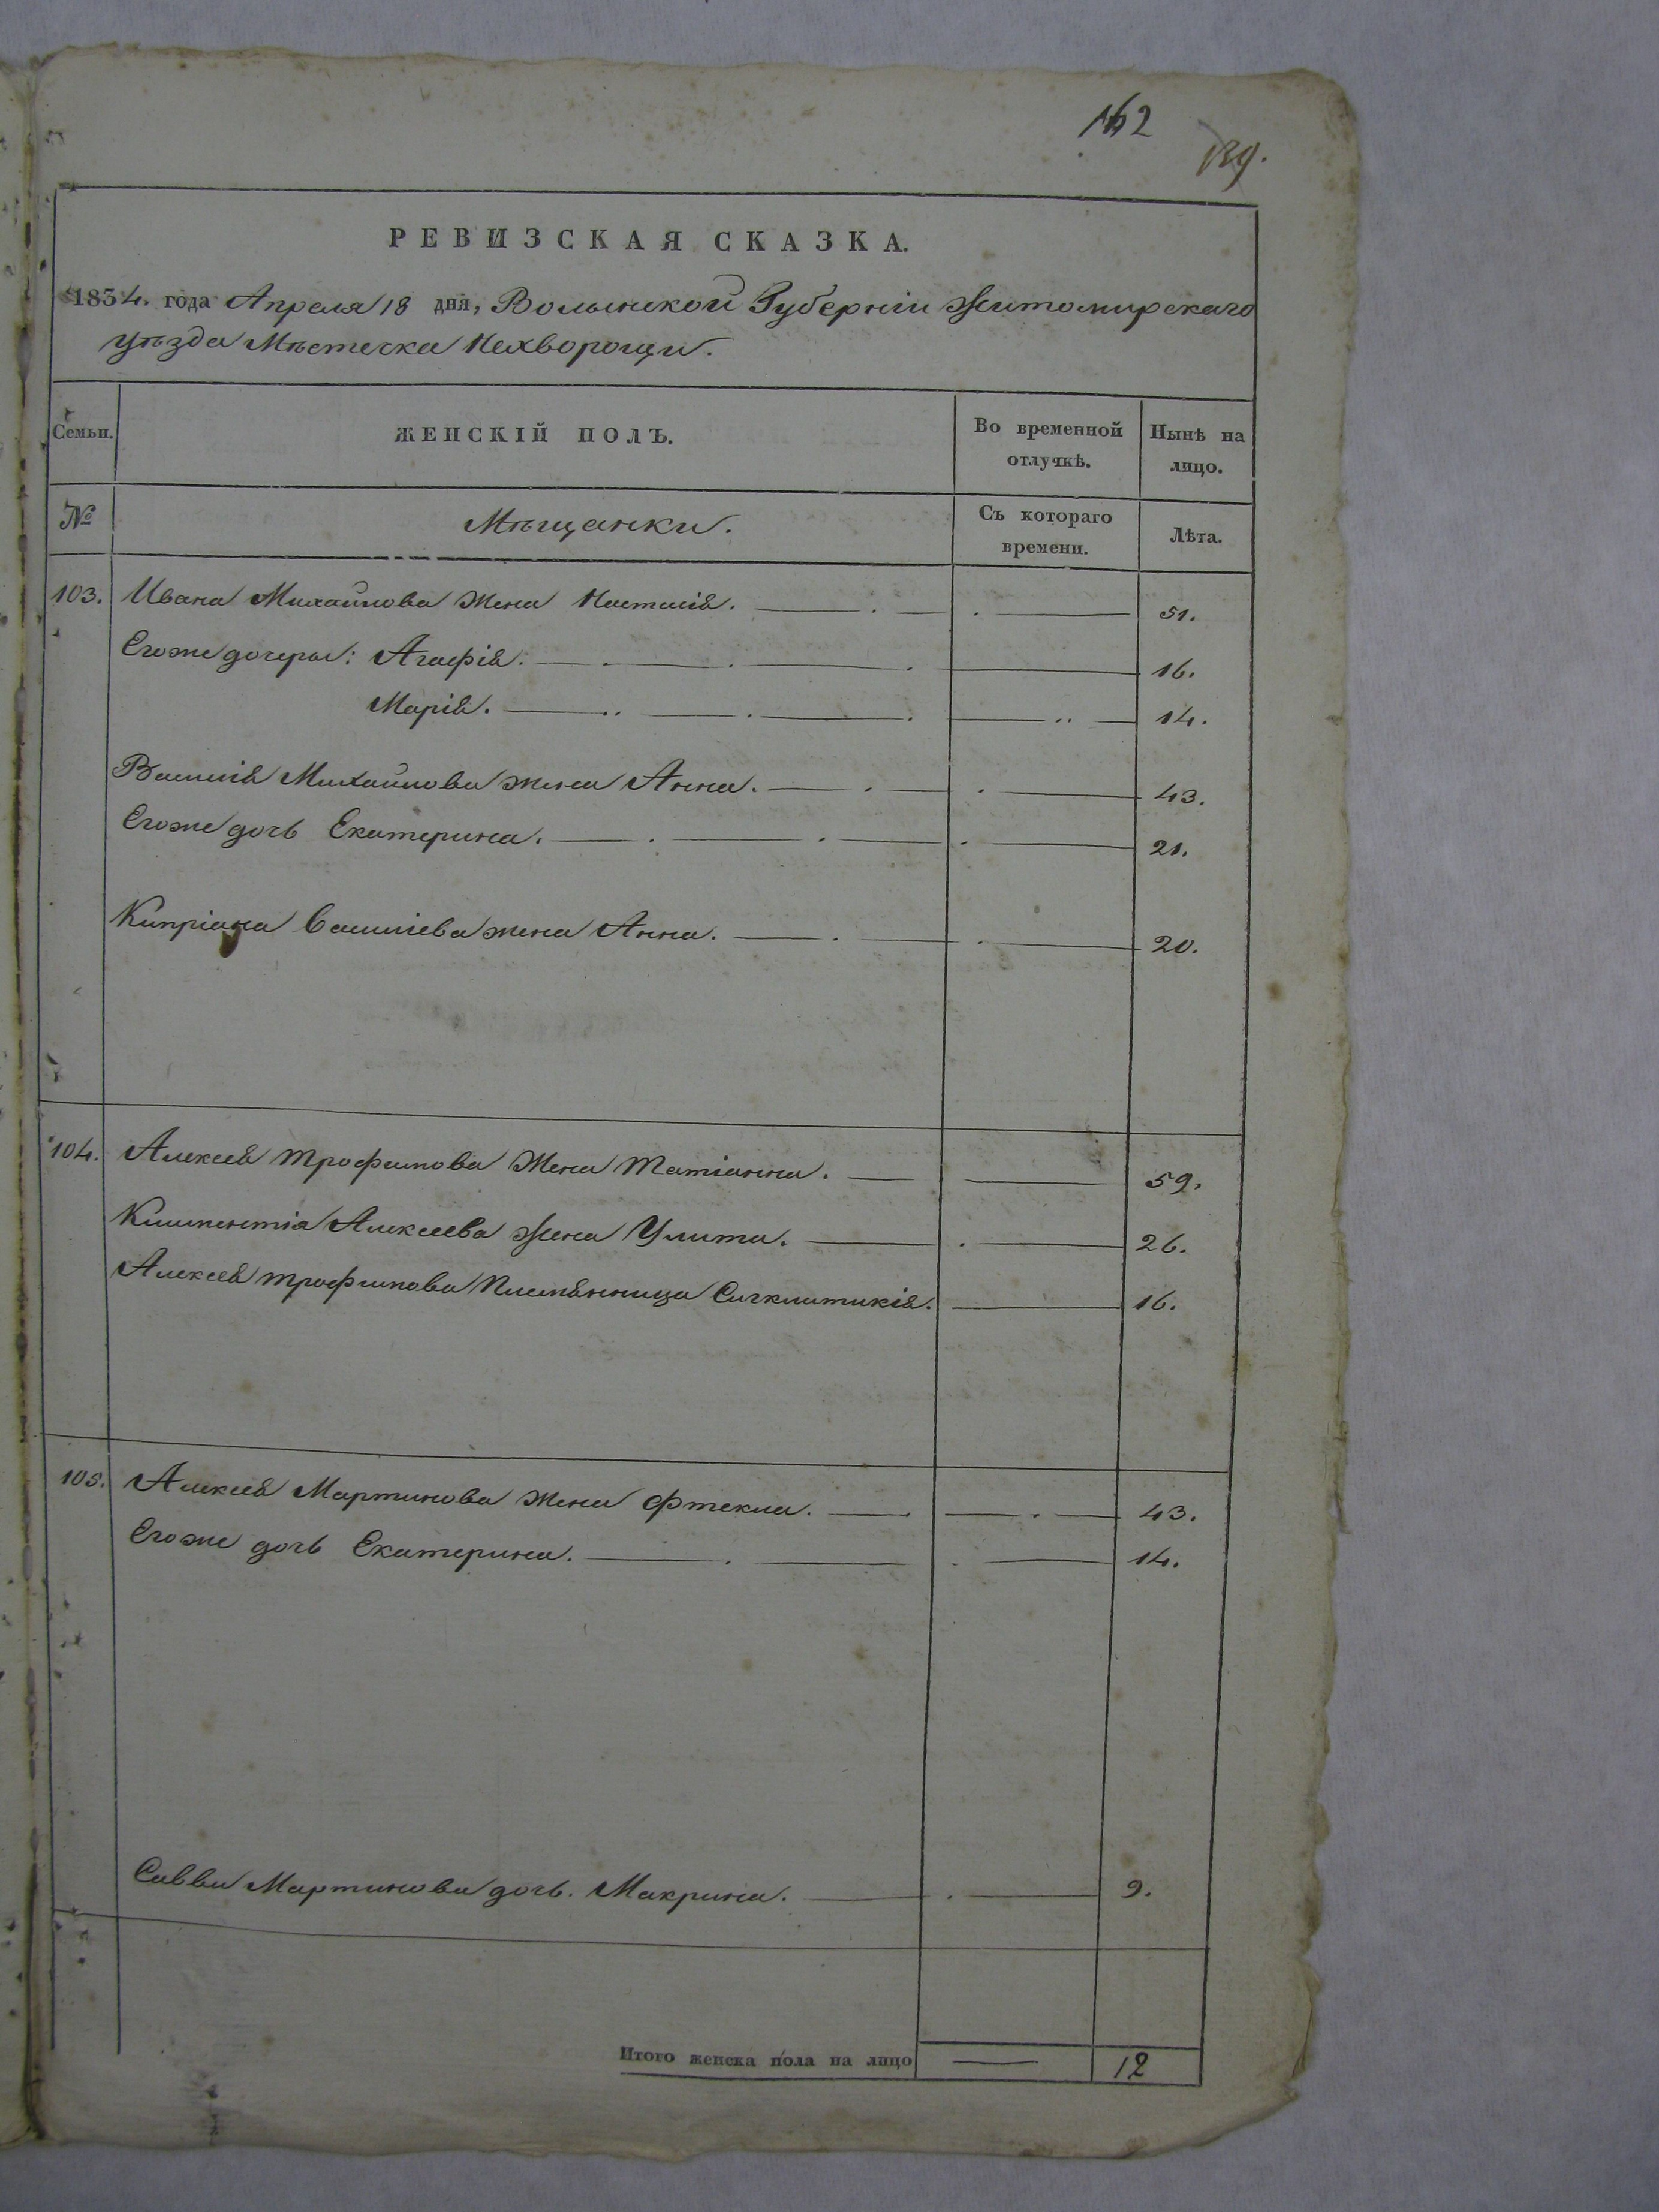 162
139.
РЕВИЗСКАЯ СКАЗКА.
1834. года Апреля 18 дня, Волынской Губерніи Житомирскаго
уѣзда Мѣстечка Нехворощи.
Семьи. ЖЕНСКІЙ ПОЛЪ. Во временной отлучкѣ. Нынѣ на лицо.
№ Мѣщанки. Съ котораго времени. Лѣта.
103. Ивана Михайлова жена Настасія. 51.
Егоже дочеры: Агафія. 16.
Марія. 14.
Василія Михайлова жена Анна. 43.
Егоже дочь Екатерина. 21.
Кипріана Василіева жена Анна. 20.
104. Алексея Трофимова жена Татіанна. 59.
Климентія Алексеева жена Улита. 26.
Алексея Трофимова племянница Сигклитикія. 16.
105. Алексея Мартинова жена Фтекла. 43.
Егоже дочь Екатерина. 14.
Савви Мартинова дочь. Макрина. 9.
Итого женска пола на лицо 12